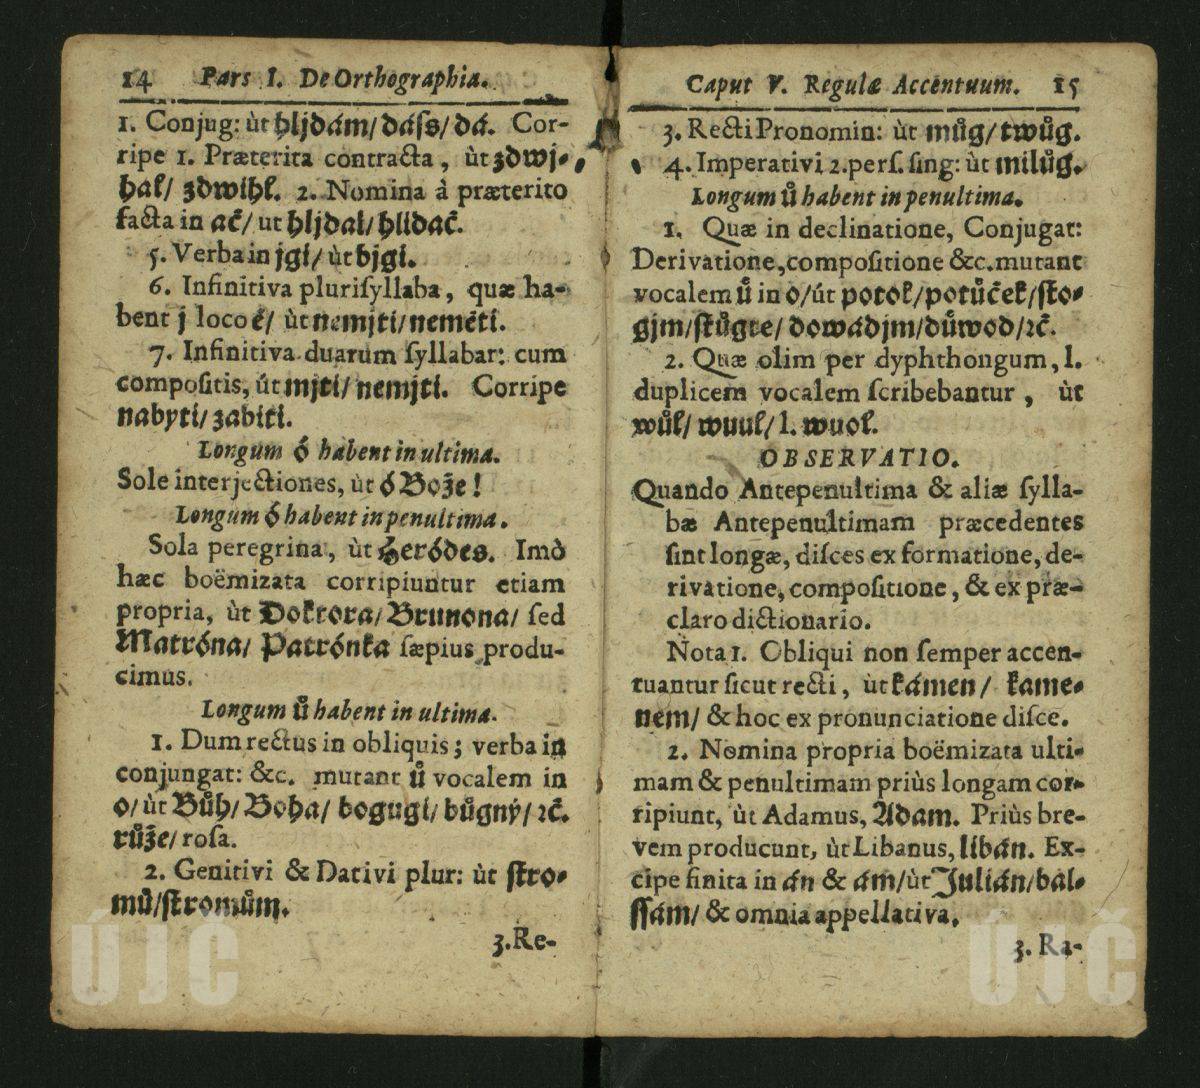 14 Pars I. De Orthographia.
1. Conjug: ùt hljdám/ dáſs/ dá. Cor-
ripe 1. Præterita contracta, ùt zdwj-
hal/ zdwihl. 2. Nomina à præterito
facta in ač/ ut hljdal/ hlidač.
5. Verba in jgi/ ùt bjgi.
6. Infinitiva pluriſyllaba, quæ ha-
bent j loco é/ ùt nemjti/ neméti.
7. Infinitiva duarum ſyllabar: cum
compoſitis, út mjti/ nemjti. Corripe
nabyti/ zabiti.
Longum ó habent in ultima.
Sole interjectiones, ùt ó Bože!
Longum ó habent in penultima.
Sola peregrina, ùt Heródes. Imò
hæc boëmizata corripiuntur etiam
propria, ùt Doktora/ Brunona/ ſed
Matróna/ Patrónka ſæpius produ-
cimus.
Longum ů habent in ultima.
1. Dum rectus in obliquis; verba in
conjungat: &c. mutant ů vocalem in
o/ ùt Bůh/ Boha/ bogugi/ bůgný/ ꝛč.
růže/ roſa.
2. Genitivi & Dativi plur: ùt ſtro-
mů/ſtromům.
3. Re-
Caput V. Regulæ Accentuum. 15
3. Recti Pronomin: ùt můg/ twůg.
4. Imperativi 2. perſ. ſing: ùt milůg.
Longum ů habent in penultima.
1. Quæ in declinatione, Conjugat:
Derivatione, compoſitione &c. mutant
vocalem ů in o/ út potok/ potůček/ ſto-
gjm/ ſtůgte/ dowádjm/ důwod/ ꝛč.
2. Quæ olim per dyphthongum, l.
duplicem vocalem ſcribebantur, ùt
wůl/ wuul/ l. wuol.
OBSERVATIO.
Quando Antepenultima & aliæ ſylla-
bæ Antepenultimam præcedentes
ſint longæ, diſces ex formatione, de-
rivatione, compoſitione, & ex præ-
claro dictionario.
Nota 1. Obliqui non ſemper accen-
tuantur ſicut recti, ùt kámen/ kame-
nem/ & hoc ex pronunciatione diſce.
2. Nomina propria boëmizata ulti-
mam & penultimam priùs longam cor-
ripiunt, ùt Adamus, Adam. Priùs bre-
vem producunt, ùt Libanus, libán. Ex-
cipe finita in án & ám/ ùt Julián/ bal-
ſſám/ & omnia appellativa.
3. Ra-
ÚJČ
ÚJČ